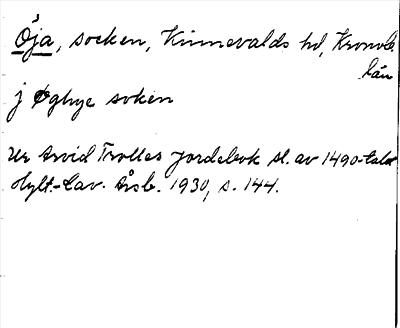 Öja, socken, Kinnevalds hd, Kronob.
län
j Øghye soken
Ur Arvid Trolles jordebok sl. av 1490-talet
Hylt.-Cav. Årsb. 1930, s. 144.